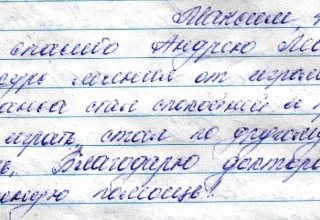 Максим,
спасибо Андрею
курс лечения от играм
стал спокойней и
играть стал по другому
Благодарю доктора
помощь!